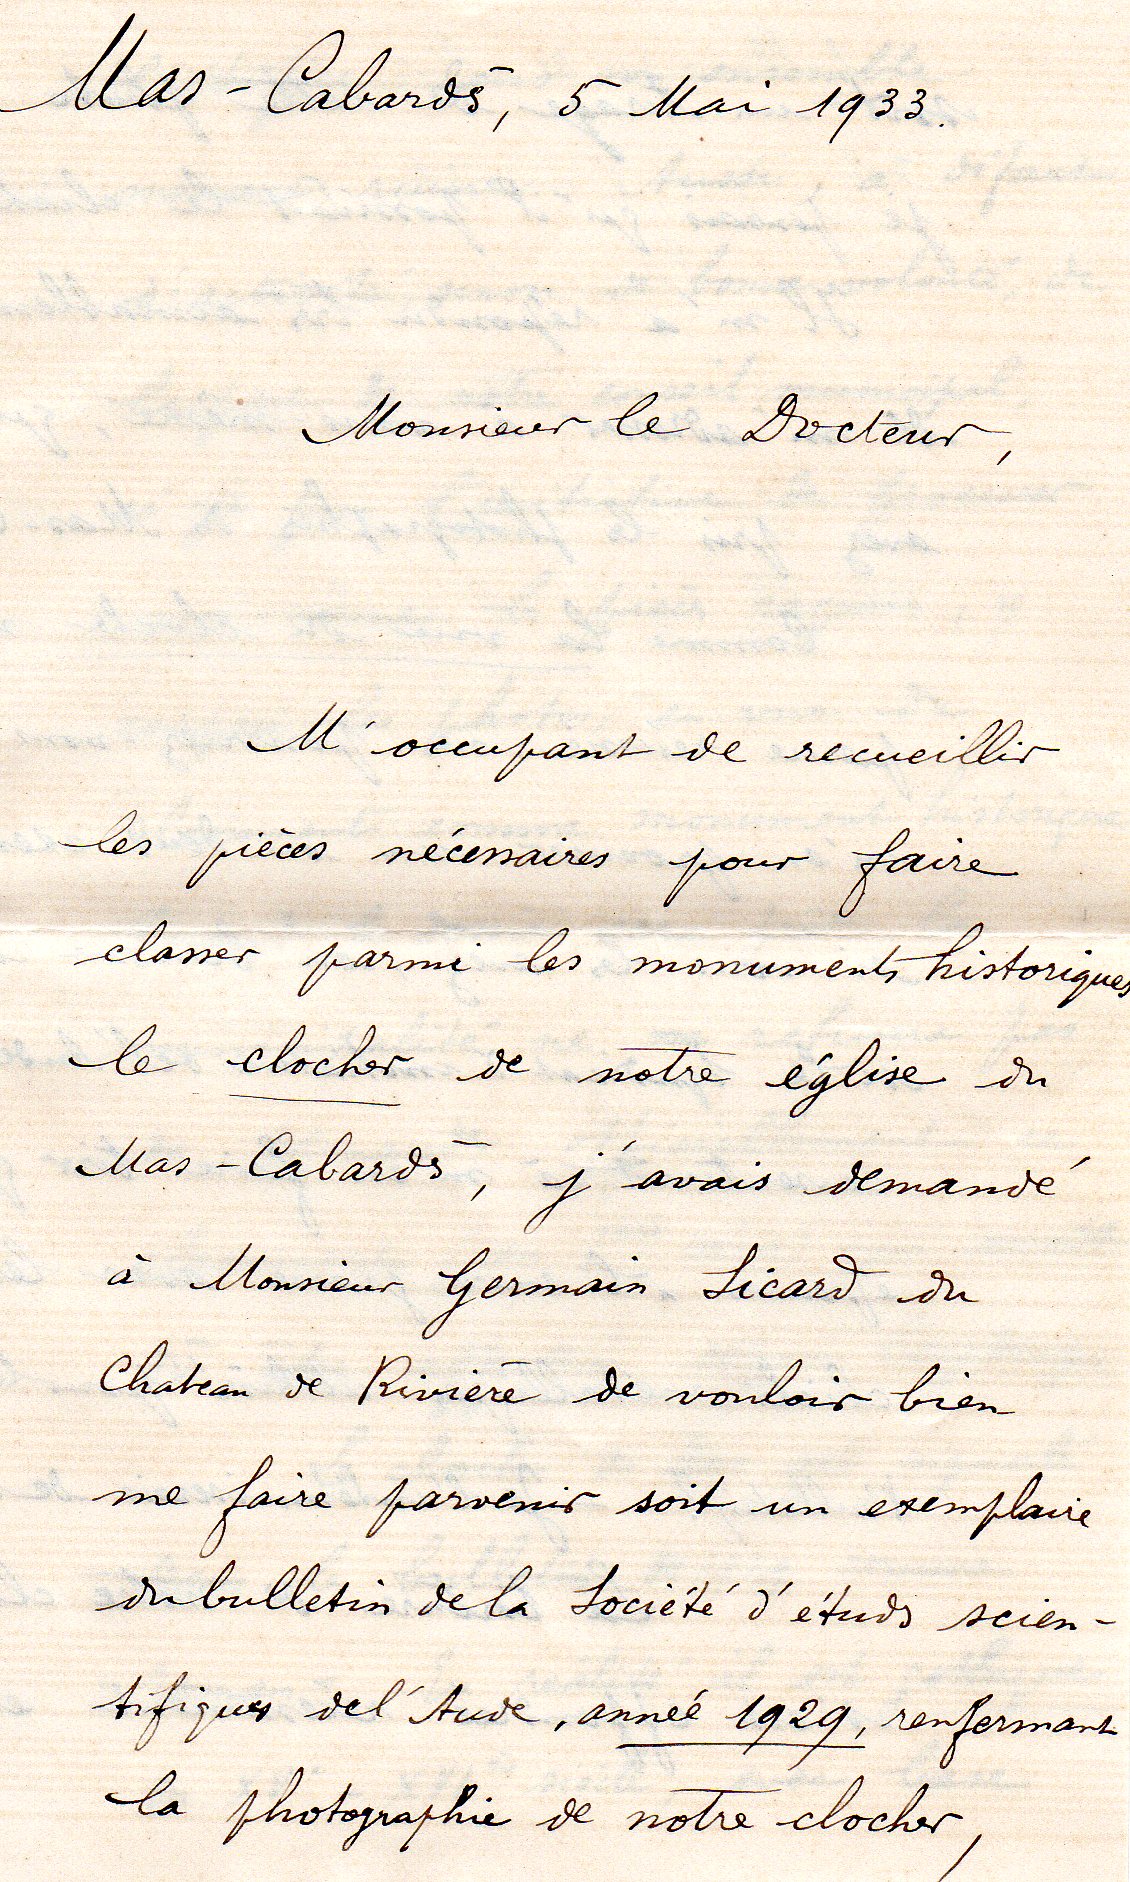 Mas-Cabardès, 5 Mai 1933.
Monsieur le Docteur,
M'occupant de recueillir
les pièces nécessaires pour faire
classer parmi les monuments historiques
le clocher de notre église du
Mas-Cabardès, j'avais demandé
à Monsieur Germain Sicard du
Chateau de Rivière de vouloir bien
me faire parvenir soit un exemplaire
du bulletin de la Société d'études scien-
tifiques de l'Aude, année 1929, renfermant
la photographie de notre clocher,